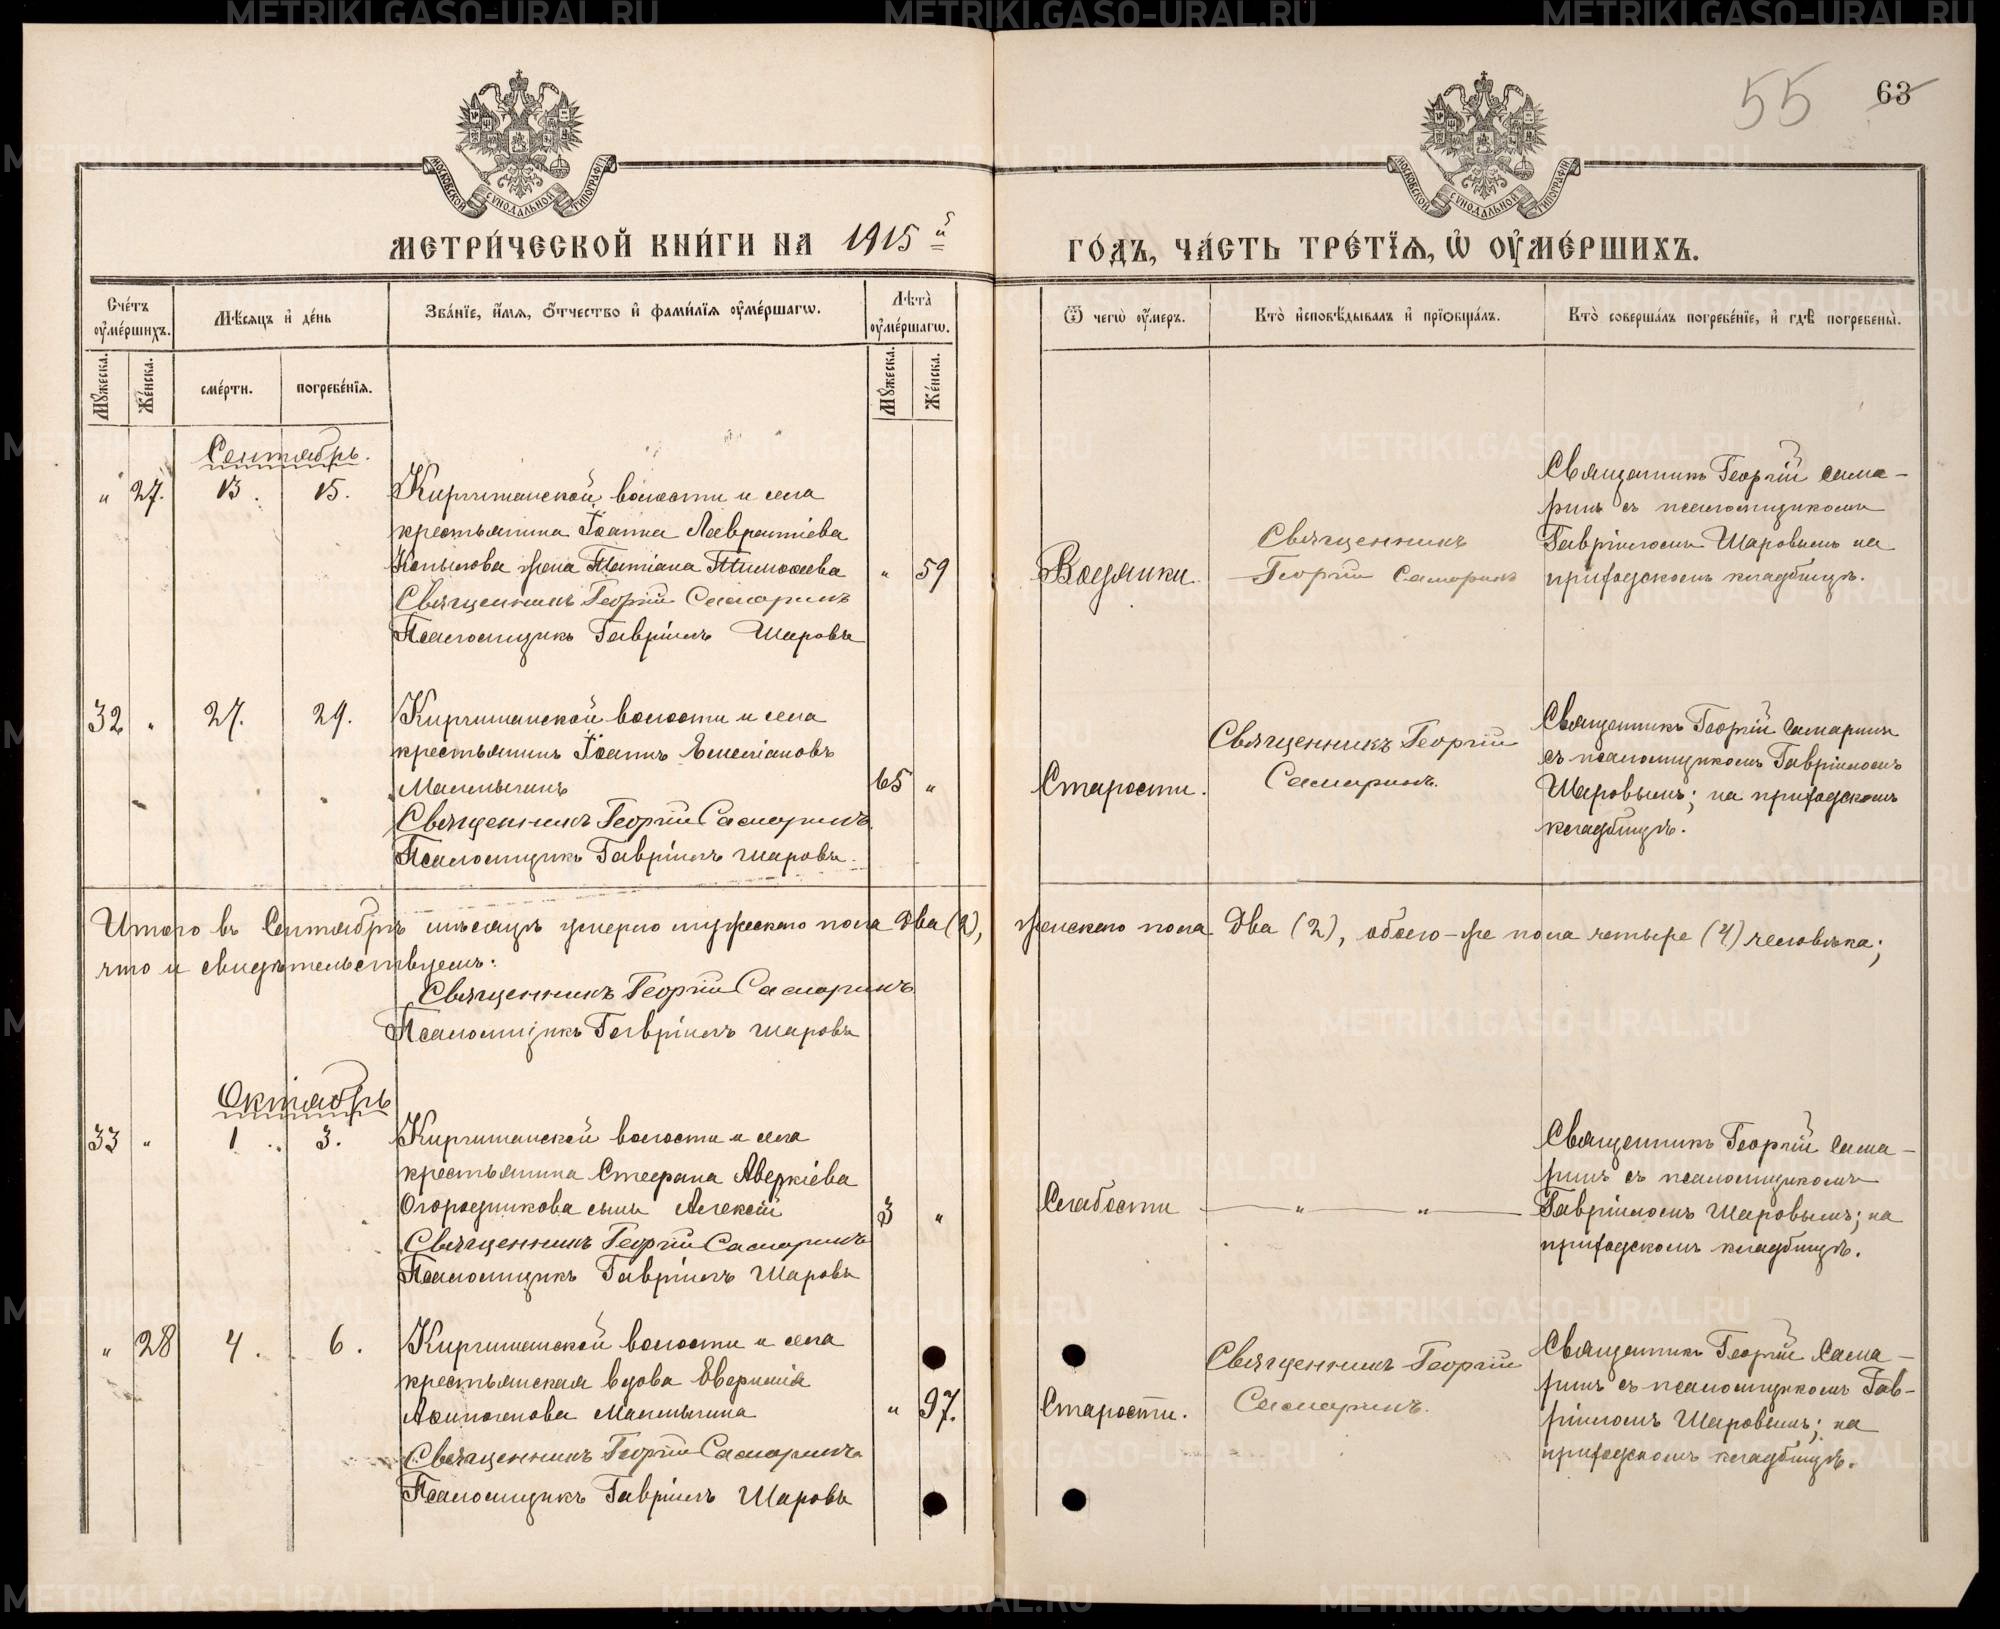 55 63
МОСКОВСКОЙ СѴНОДАЛЬНОЙ ТИПОГРАФІИ
МОСКОВСКОЙ СѴНОДАЛЬНОЙ ТИПОГРАФІИ
МЕТРИ́ЧЕСКОЙ КНИ́ГИ НА 1915 й
ГО́ДЪ, ЧА́СТЬ ТРЕ́ТЇѦ, Ѡ҆ ОУ҆МЕ́РШИХЪ.
Сче́тъ оу҆ме́ршихъ.
Мꙋ́жеска.
Же́нска.
Мѣ́сяцъ и҆ де́нь
сме́рти.
погребе́нїѧ.
Зва́нїе, и҆́мѧ, ѻ҆́тчество и҆ фами́лїѧ оу҆ме́ршагѡ.
Лѣта̀ оу҆ме́ршагѡ.
Мꙋ́жеска.
Же́нска.
Ѿ чегѡ̀ оу҆́меръ.
Кто̀ и҆сповѣ́дывалъ и҆ прїѡбща́лъ.
Кто̀ соверша́лъ погребе́нїе, и҆ гдѣ̀ погребены̀.
Сентябрь.
" 27. 13. 15.
Киргишанской волости и села
крестьянина Іоанна Лаврентіева
Копылова жена Татіана Тимоѳеева " 59
Священникъ Георгій Самаринъ
Псаломщикъ Гавріилъ Шаровъ
Водянки.
Священникъ
Георгій Самаринъ
Священникъ Георгій Сама-
ринъ съ псаломщикомъ
Гавріиломъ Шаровымъ на
приходскомъ кладбищѣ.
32 " 27. 29.
Киргишанской волости и села
крестьянинъ Іоаннъ Емеліановъ
65 "
Священникъ Георгій Самаринъ.
Псаломщикъ Гавріилъ Шаровъ.
Старости.
Священникъ Георгій
Самаринъ.
Священникъ Георгій Самаринъ
съ псаломщикомъ Гавріиломъ
Шаровымъ; на приходскомъ
кладбищѣ.
Итого въ Сентябрѣ мѣсяцѣ умерло мужескаго пола два (2), женскаго пола два (2), обоего-же пола четыре (4) человѣка;
что и свидѣтельствуемъ:
Священникъ Георгій Самаринъ
Псаломщикъ Гавріилъ Шаровъ
Октябрь
33 " 1. 3.
Киргишанской волости и села
крестьянина Стефана Аверкіева
Огородникова сынъ Алексій 3 "
Священникъ Георгій Самаринъ
Псаломщикъ Гавріилъ Шаровъ
Слабости
" "
Священникъ Георгій Сама-
ринъ съ псаломщикомъ
Гавріиломъ Шаровымъ; на
приходскомъ кладбищѣ.
" 28 4. 6.
Киргишанской волости и села
крестьянская вдова
" 97.
Священникъ Георгій Самаринъ
Псаломщикъ Гавріилъ Шаровъ
Старости.
Священникъ Георгій
Самаринъ.
Священникъ Георгій Сама-
ринъ съ псаломщикомъ Гав-
ріиломъ Шаровымъ; на
приходскомъ кладбищѣ.
METRIKI.GASO-URAL.RU